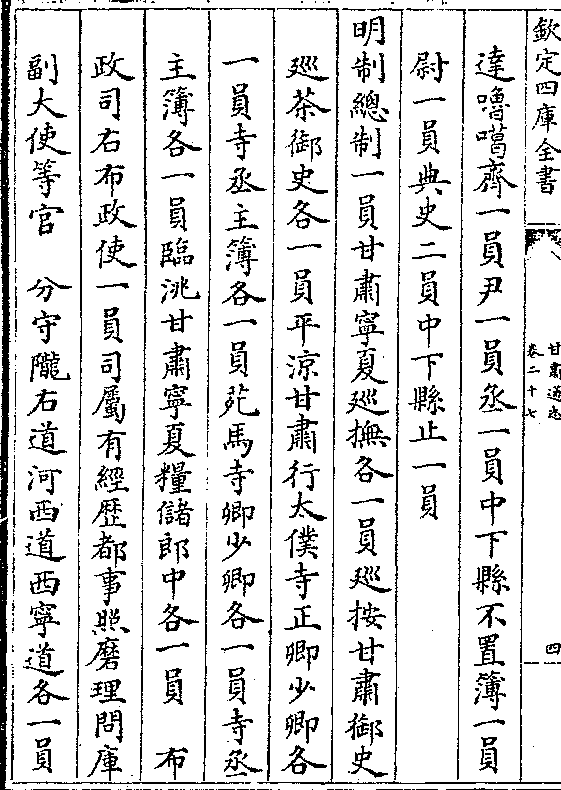 欽定四庫全書
甘肅通志
卷二十七
四
達嚕噶齊一員尹一員丞一員中下縣不置簿一員
尉一員典史二員中下縣止一員
明制總制一員甘肅寧夏廵撫各一員廵按甘肅御史
廵茶御史各一員平涼甘肅行太僕寺正卿少卿各
一員寺丞主簿各一員苑馬寺卿少卿各一員寺丞
主簿各一員臨洮甘肅寧夏糧儲郎中各一員　布
政司右布政使一員司屬有經歴都事照磨理問庫
副大使等官　分守隴右道河西道西寧道各一員